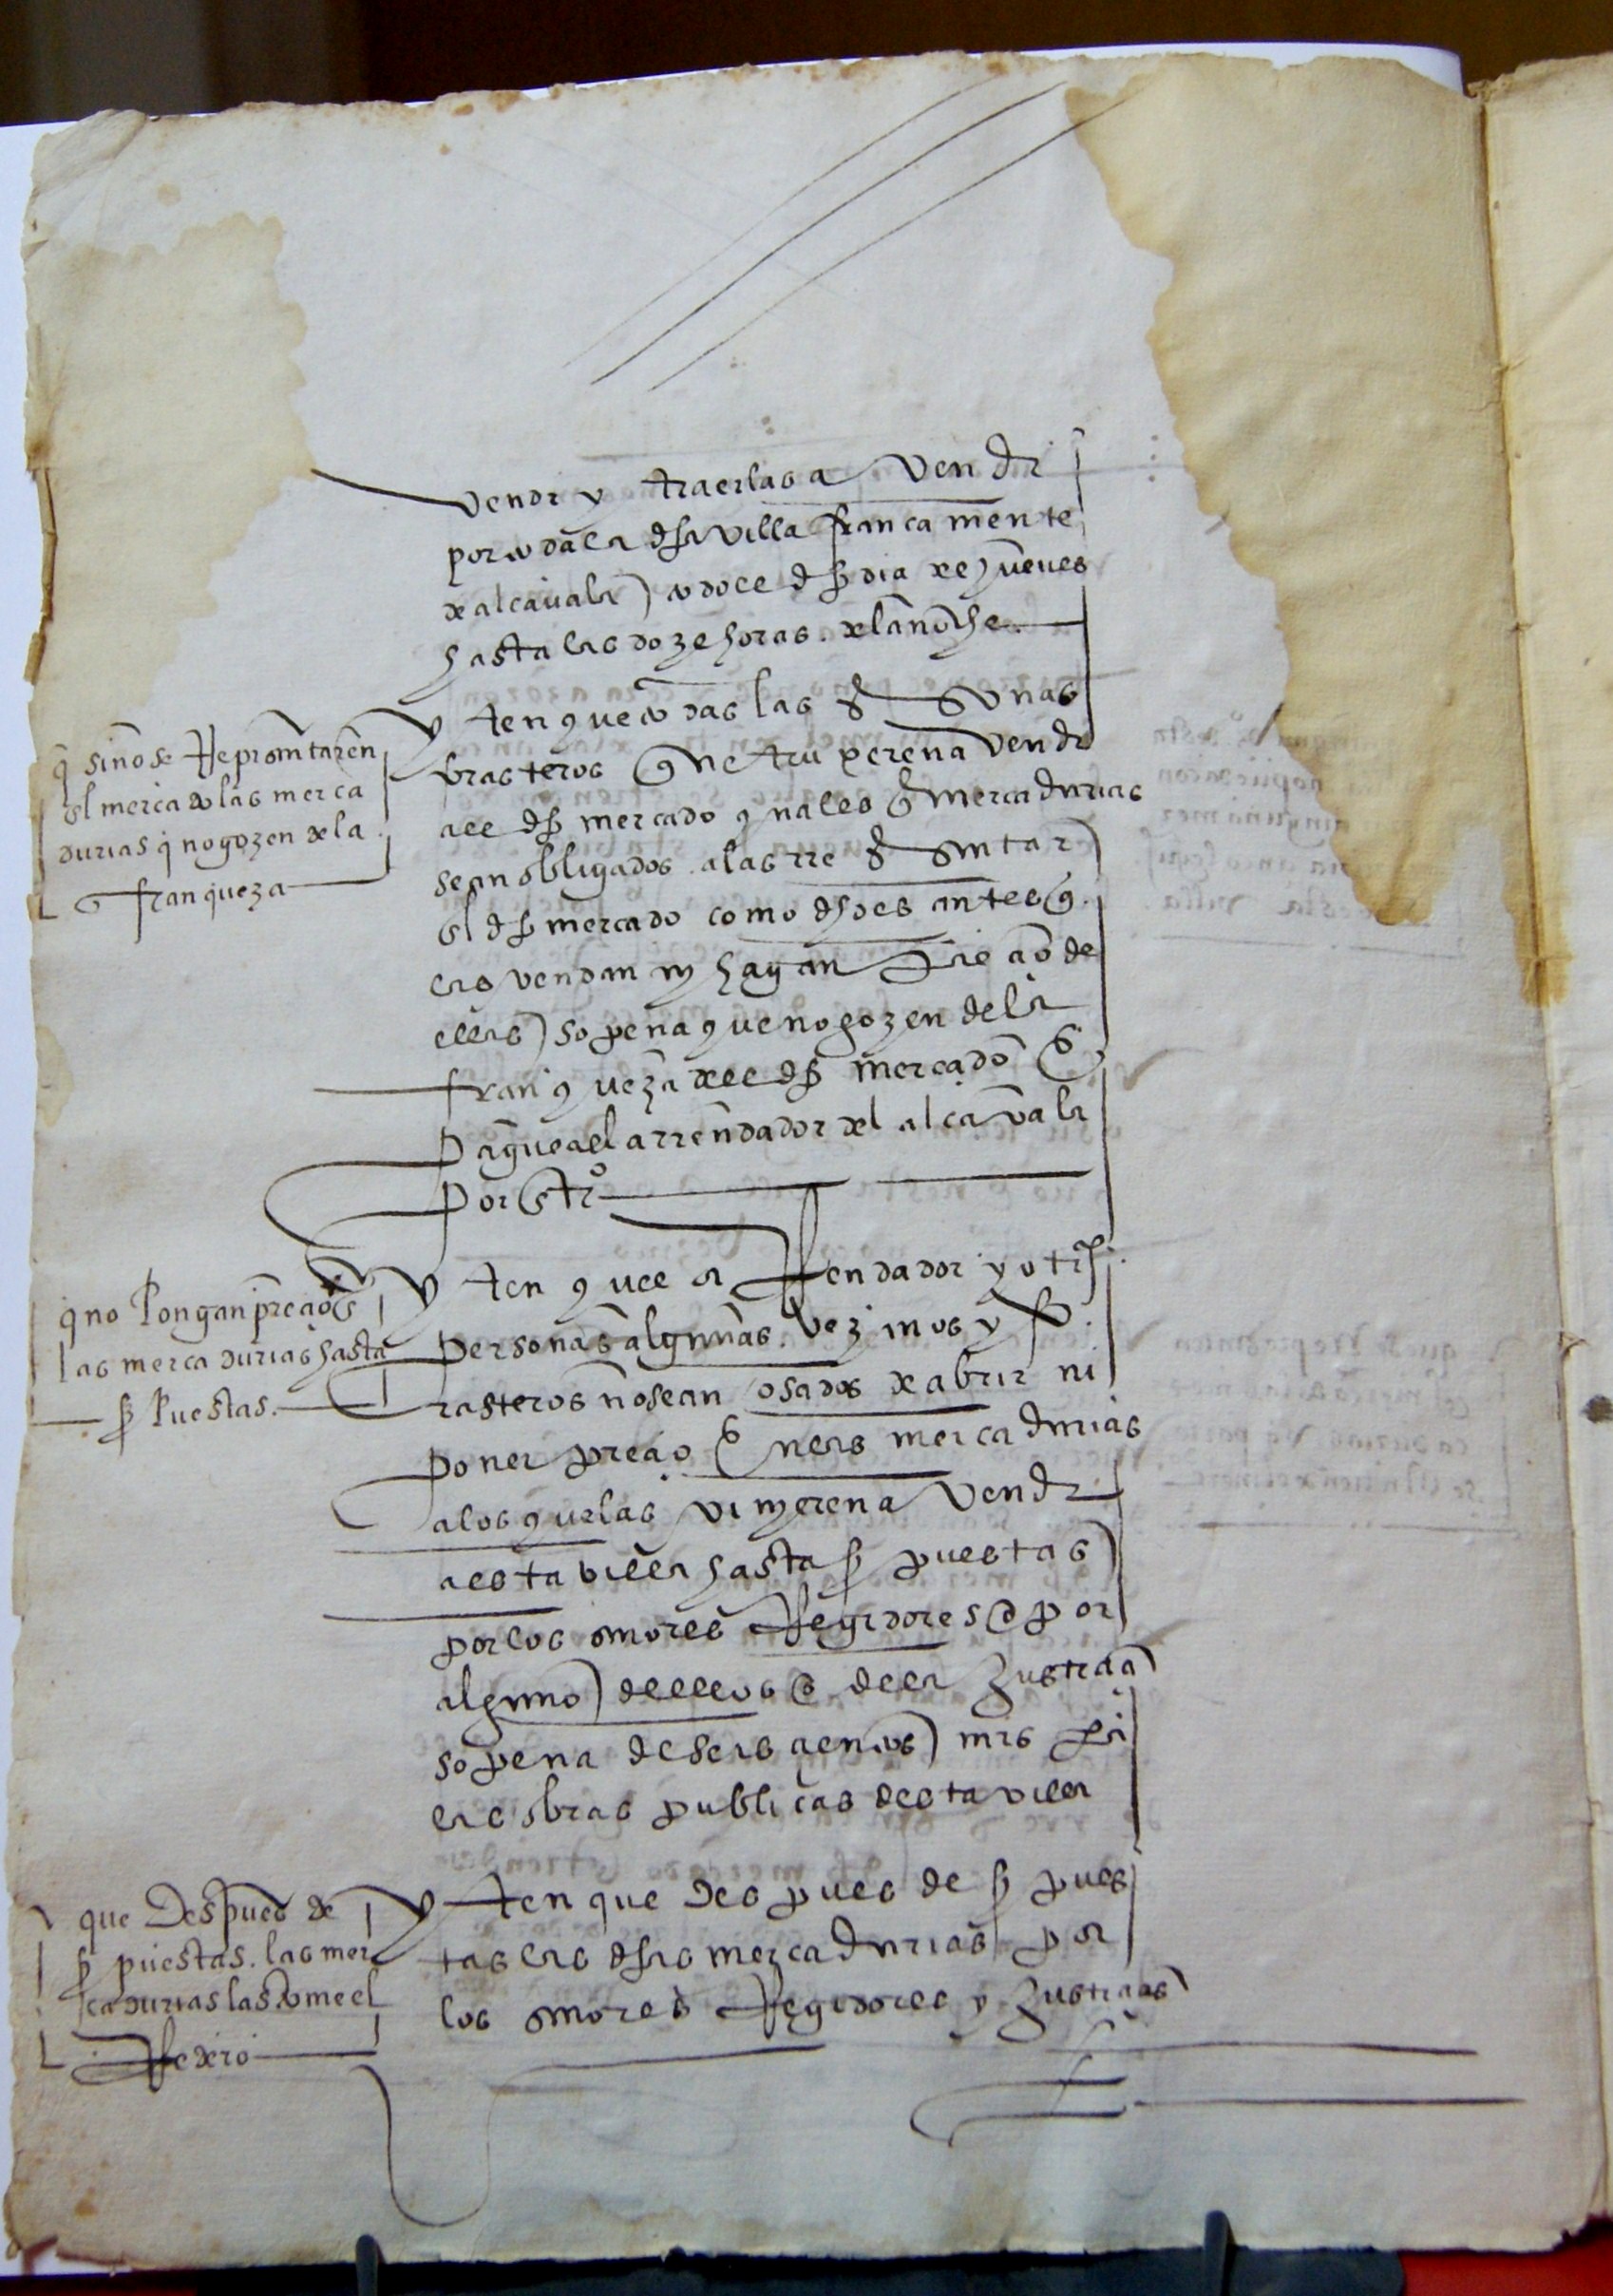 vendr y traerlas a vendr
por toda la dha villa francamente
de alcavala todo el dho dia de jueves
hasta las doze horas de la noche
q sino se Representaren
el mercado las merca
durias q no gozen de la
franqueza
yten que todas las personas
forasteros que truxeren a vendr
al dho mercado quales qr mercadurias
sean obligados a las rrepresentar
el dho mercado como dho es antes q
las vendan ny hagan precio de
ellas so pena que no gozen de la
franqueza del dho mercado e
pague al arrendador del alcavala
por entro
q no Pongan precio en
las mercadurias hasta
ser Puestas
yten que el arrendador y otras
personas algunas vezinos y fo
rasteros no sean osados de abrir ni
poner precio en las mercadurias
a los que las vinyeren a vendr
a esta villa hasta ser puestas
por los senores Regidores o por
alguno dellos o de la Justicia
so pena de seis cientos mrs para
las obras publicas desta villa
que Despues de
ser puestas las mer
cadurias las tome el
Rexidor
yten que despues de ser pues
tas las dhas mercadurias por
los senores Regidores y Justicias